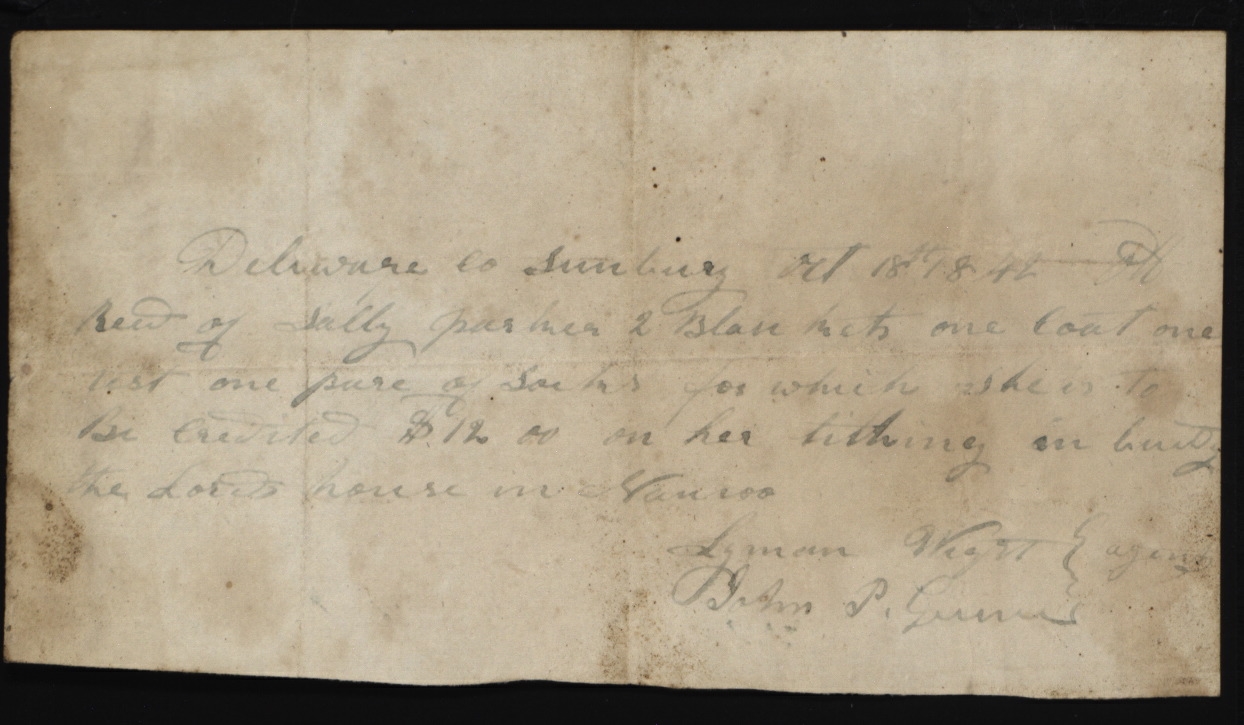 Delaware co Sunbury Oct 18th 1842
Recd of Sally parker 2 Blankets one Coat one
vest one pare of Socks for which she is to
Be Credited $12 00 on her tithing in build
the Lords house in Nauvoo
Lyman Wight } agents
John P. Greene